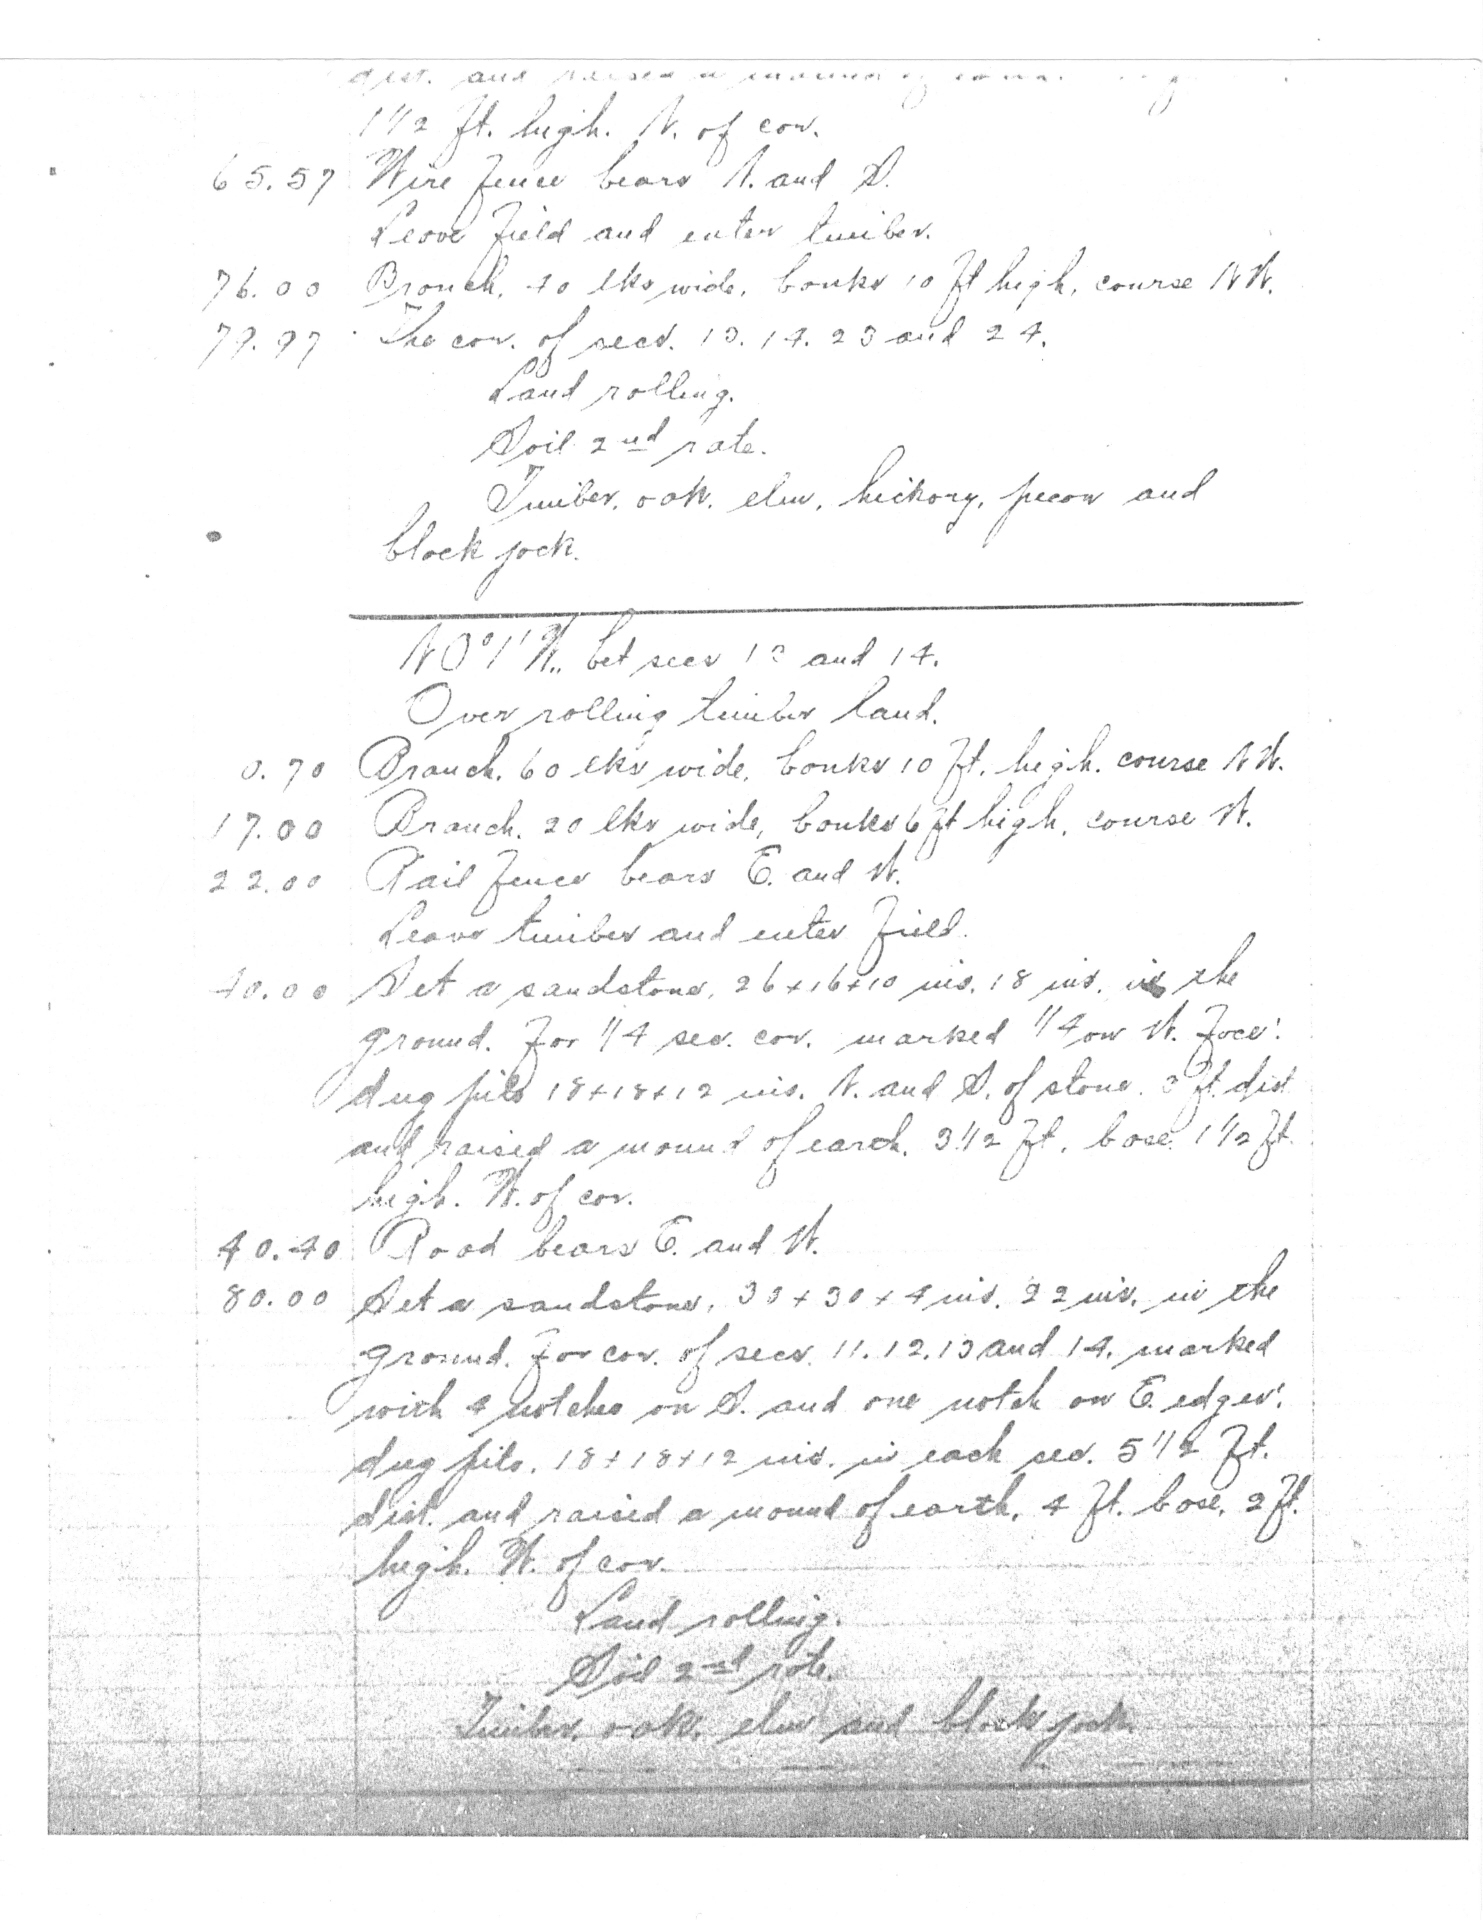 dist. and raised a mound of
1 1/2 ft. high. N. of cor.
65.57 Wire fence bears N. and S.
Leave field and enter timber.
76.00 Branch, 40 lks wide, banks 10 ft high, course NW.
79.97 The cor. of secs. 13. 14. 23 and 24.
Land rolling.
Soil 2nd rate.
Timber, oak, elm, hickory, pecan and
black jack.
N0°1'W., bet secs 13 and 14.
Over rolling timber land.
0.70 Branch, 60 lks wide, banks 10 ft. high, course NW.
17.00 Branch, 20 lks wide, banks 6 ft high, course W.
22.00 Rail fence bears E. and W.
Leave timber and enter field.
40.00 Set a sandstone, 26+16+10 ins. 18 ins. in the
ground, for 1/4 sec. cor. marked 1/4 on W. face;
dug pits 18+18+12 ins. N. and S. of stone 3 ft. dist
and raised a mound of earth, 3 1/2 ft. base, 1 1/2 ft.
high. W. of cor.
40.40 Road bears E. and W.
80.00 Set a sandstone, 30+30+4 ins. 22 ins. in the
ground, for cor. of secs. 11. 12. 13 and 14. marked
with 4 notches on S. and one notch on E. edges;
dug pits, 18+18+12 ins. in each sec. 5 1/2 ft.
dist. and raised a mound of earth, 4 ft. base, 2 ft.
high. W. of cor.
Land rolling.
Soil 2nd rate.
Timber, oak, elm and black jack.